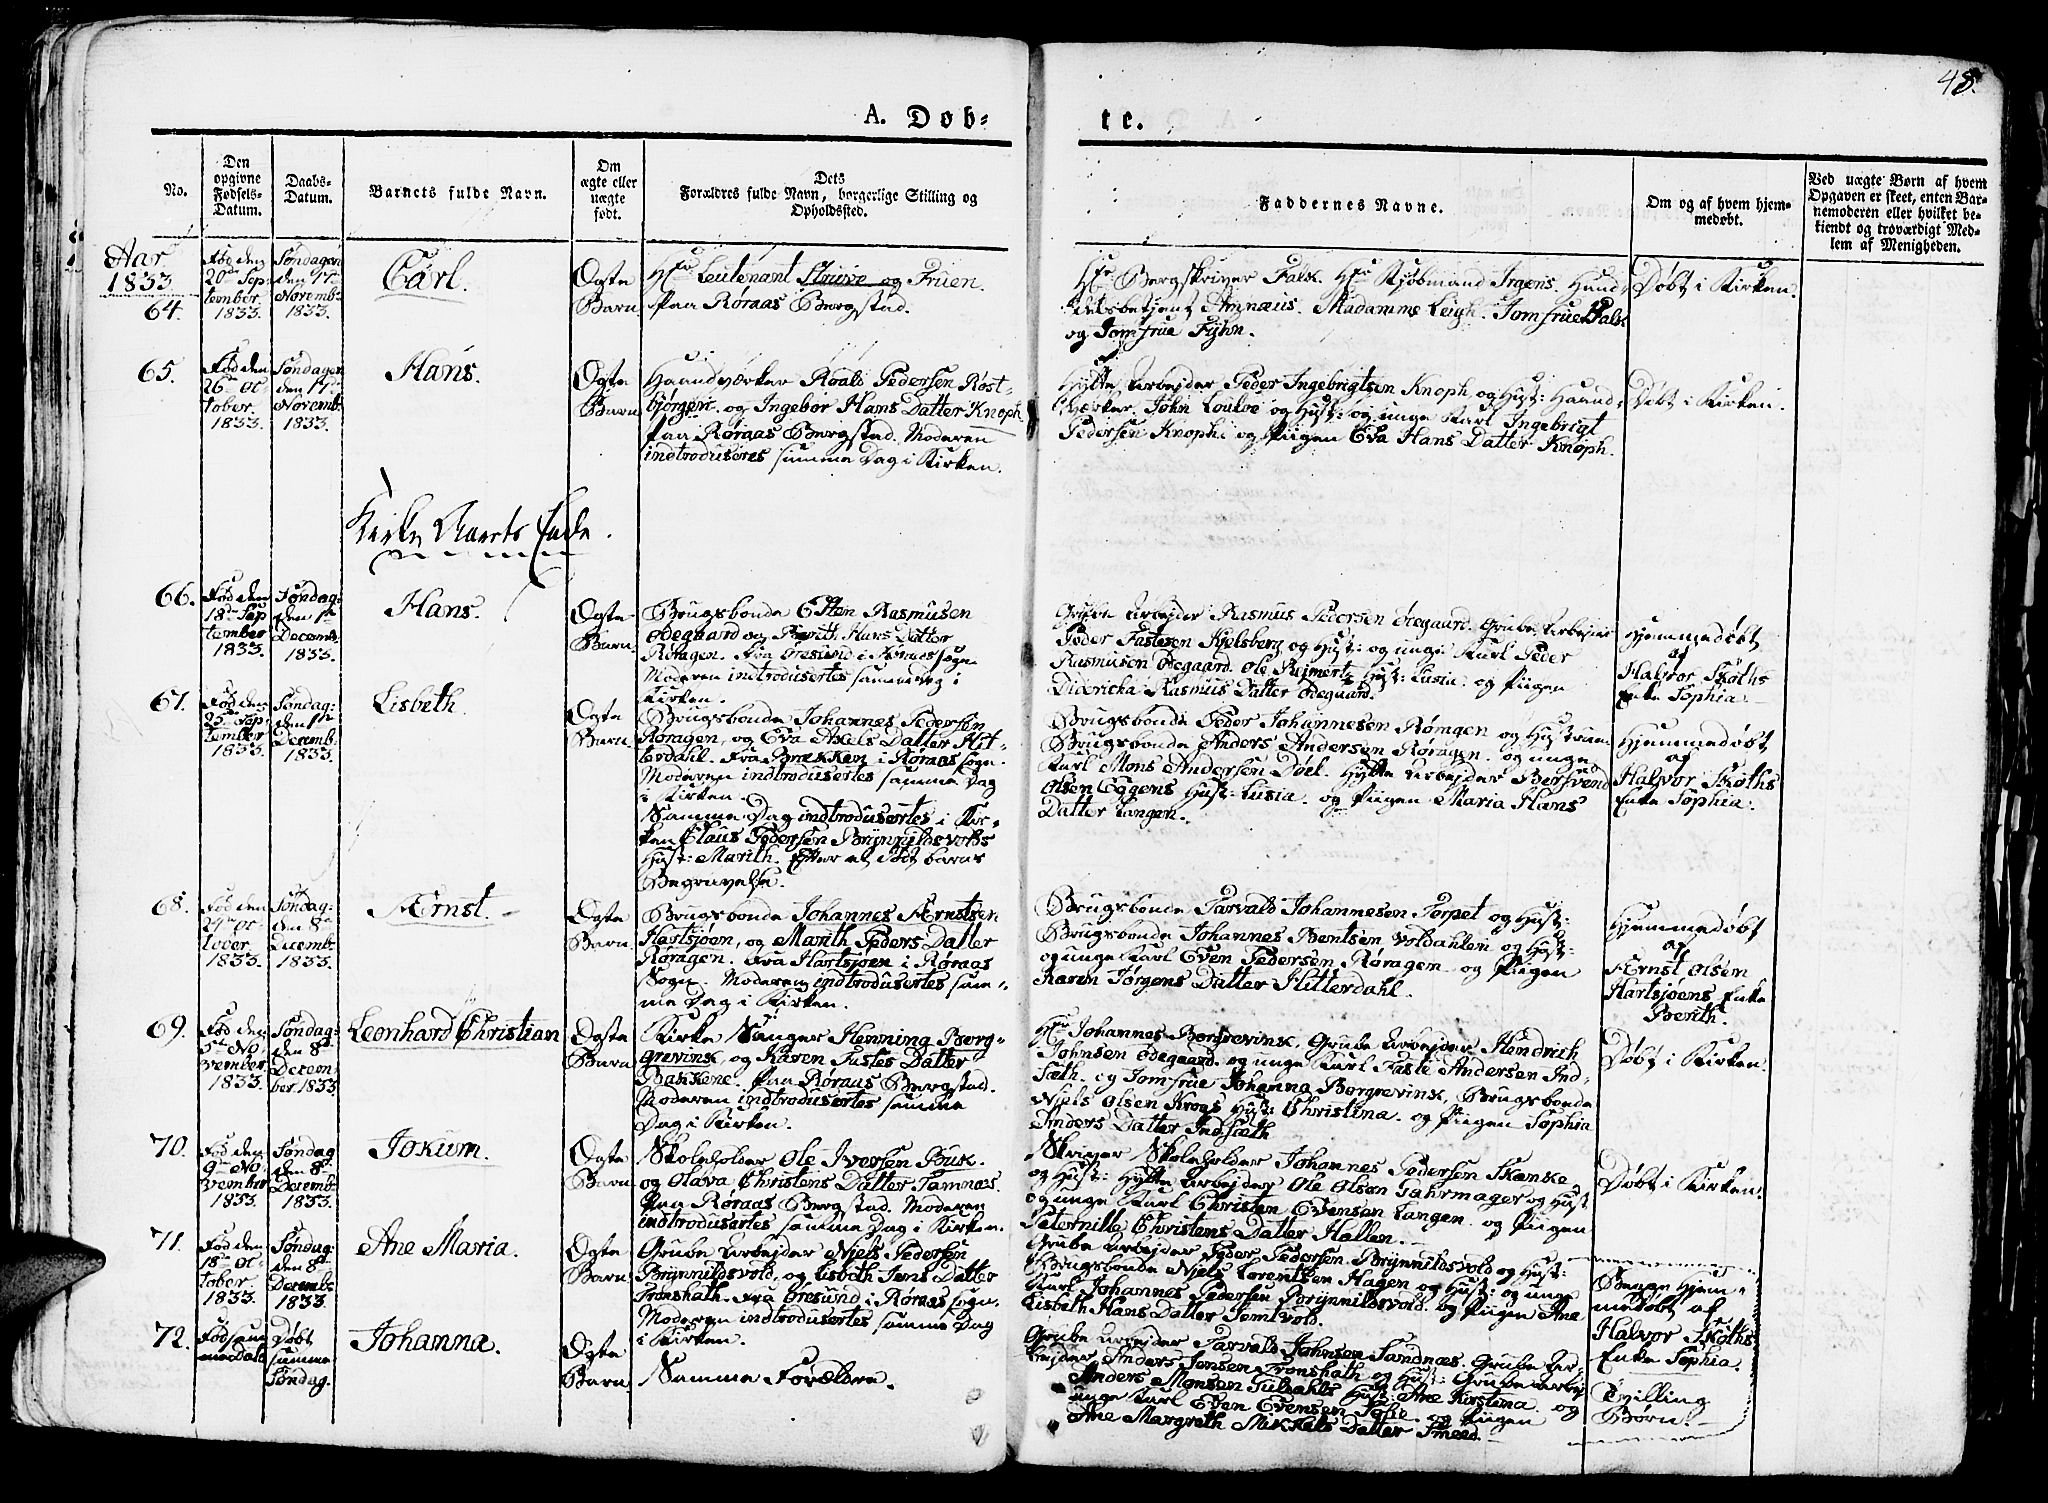 48.
A. Døb-
te.
No.
Den opgivne Fødsels-Datum.
Daabs-Datum.
Barnets fulde Navn.
Om ægte eller uægte født.
Dets Forældres fulde Navn, borgerlige Stilling og Opholdssted.
Faddernes Navne.
Om og af hvem hjem-medøbt.
Ved uægte Børn af hvem Opgaven er skeet, enten Bar-nemoderen eller hvilket be-kiendt og troværdigt Med-lem af Menigheden.
Aar
1833
64.
Fød den
20de Sep-
tember.
1833.
Søndagen
den 17de
Novemb:
1833.
Carl.
Ægte
Barn
Hr Leutenant Struve og Fruen.
Paa Røraas Bergstad.
Hr Bergskriver Falk. Hr Kjøbmand Irgens. Hand-
delsbetjent Amnæus. Madamme Leigh. Jomfrue Falk
og Jomfrue Fyhn.
Døbt i Kirken.
65.
Fød den
26de Oc
tober.
1833.
Søndagen
den 17de
Novemb:
1833.
Hans.
Ægte
Barn
Haandværker Roald Pedersen Røst-
bjørgen. og Ingebor Hans Datter Knoph
Paa Røraas Bergstad. Moderen
indtroduseres samme Dag i Kirken.
Hytte Arbejder Peder Ingebrigtsen Knoph og Hust: Haand-
værker John Loukve og Hust: og unge Karl Ingebrigt
Pedersen Knoph: og Piigen Eva Hans Datter Knoph.
Døbt i Kirken.
Kirke Aarets Ende.
66.
Fød den
18de Sep
tember
1833.
Søndag:
den 1te
Decemb:
1833.
Hans.
Ægte
Barn.
Brugsbonde Esten Rasmusen
Ødegaard og Berith Hans Datter
Røragen. Fra Øresund i Røraas Sogn
Moderen indtrodusertes samme Dag i
Kirken.
Grube Arbejder Rasmus Pedersen Ødegaard. Grube Arbejder
Peder Fastesen Kjelsberg og Hust: og unge Karl Peder
Rasmusen Ødegaard. Ole Reimertz Hust: Lusia. og Piigen
Didericka Rasmus Datter Ødegaard.
Hjemmedøbt
af
Halvor Skoths
Enke Sophia.
67.
Fød den
25de Sep-
tember
1833.
Søndag:
den 1te
Decemb:
1833.
Lisbeth.
Ægte
Barn.
Brugsbonde Johannes Pedersen
Røragen, og Eva Axels Datter Hit-
terdahl. Fra Brækken i Røraas Sogn.
Moderen indtrodusertes samme Dag
i Kirken.
Samme Dag indtrodusertes i Kir-
ken Claus Pedersen Brynnildsvolds
Hust: Marith. Efter et Død barns
Begravelse.
Brugsbonde Peder Johannesen Røragen og Hustruen
Brugsbonde Anders Andersen Røragen. og unge
Karl Mons Andersen Døel. Hytte Arbejder Bersvend
Olsen Eggens Hust: Lusia. og Piigen Maria Hans
Datter Langen.
Hjemmedøbt
af
Halvor Skoths
Enke Sophia.
68.
Fød den
29de Oc-
tober.
1833.
Søndag:
den 8de
Decemb:
1833.
Ærnst.
Ægte
Barn.
Brugsbonde Johannes Ærnstsen
Hartsjøen, og Marith Peders Datter
Røragen. Fra Hartsjøen i Røraas
Sogn. Moderen indtrodusertes sam-
me Dag i Kirken.
Brugsbonde Tarvald Johannesen Torpet og Hust:
Brugsbonde Johannes Bentsen Voldahlen og Hust:
og unge Karl Even Pedersen Røragen. og Piigen
Karen Jørgens Datter Hitterdahl.
Hjemmedøbt
af
Ærnst Olsen
Hartsjøens Enke
Berith.
69.
Fød den
5te No-
vember.
1833.
Søndag:
den 8de
Decem-
ber 1833
Leonhard Christian
Ægte
Barn.
Kirke Sanger Henning Borg-
grevink og Karen Fastes Datter
Bakkene. Paa Røraas Bergstad.
Moderen indtrodusertes samme
Dag i Kirken.
Hr Johannes Borgrevink. Grube Arbejder Hendrich
Johnsen Ødegaard. og unge Karl Faste Andersen Ind-
sæth. og Jomfrue Johanna Borgrevink. Brugsbonde
Niels Olsen Krogs Hust: Christina. og Piigen Sophia
Anders Datter Indsæth
Døbt i Kirken.
70.
Fød den
9de No-
vember
1833.
Søndag
den 8de
Decemb:
1833.
Jokum.
Ægte
Barn.
Skoleholder Ole Iversen Buk.
og Olava Christens Datter Tamnæs.
Paa Røraas Bergstad. Moderen
indtrodusertes samme Dag i Kirken.
Skriver Skoleholder Johannes Pedersen Skænke
og Hust: Hytte Arbejder Ole Olsen Fahrmager og Hust
og unge Karl Christen Evensen Langen. og Piigen
Peternille Christens Datter Hallen.
Døbt i Kirken.
71.
Fød den
18de Oc-
tober
1833.
Søndag:
den 8de
Decemb:
1833.
Ane Maria.
Ægte
Barn.
Grube Arbejder Niels Pedersen
Brynnildsvold, og Lisbeth Jens Datter
Tronshath. Fra Øresund i Røraas Sogn.
Moderen indtrodusertes samme Dag
i Kirken.
Grube Arbejder Peder Pedersen Brynnildsvold og Hust:
Brugsbonde Niels Lorentsen Hagen og Hust: og unge
Karl Johannes Pedersen Brynnildsvold. og Piigen Ane
Lisbeth Hans Datter Temtvold.
Begge Hjem-
medøbt af
Halvor Skoths
Enke Sophia.
72.
Fød sam
me Dato
Døbt
samme
Søndag.
Johanna.
Ægte
Barn.
Samme Forældre.
Grube Arbejder Tarvald Johnsen Sandnæs. Grube Ar-
bejder Anders Jensen Tronshath og Hust: Grube Arbej
Anders Monsen Fuldahls Hust: Ane Kirstina. og
unge Karl Even Evensen Tolie. og Piigen
Ane Margreth Mikkels Datter Smeed.
Tvilling
Børn.